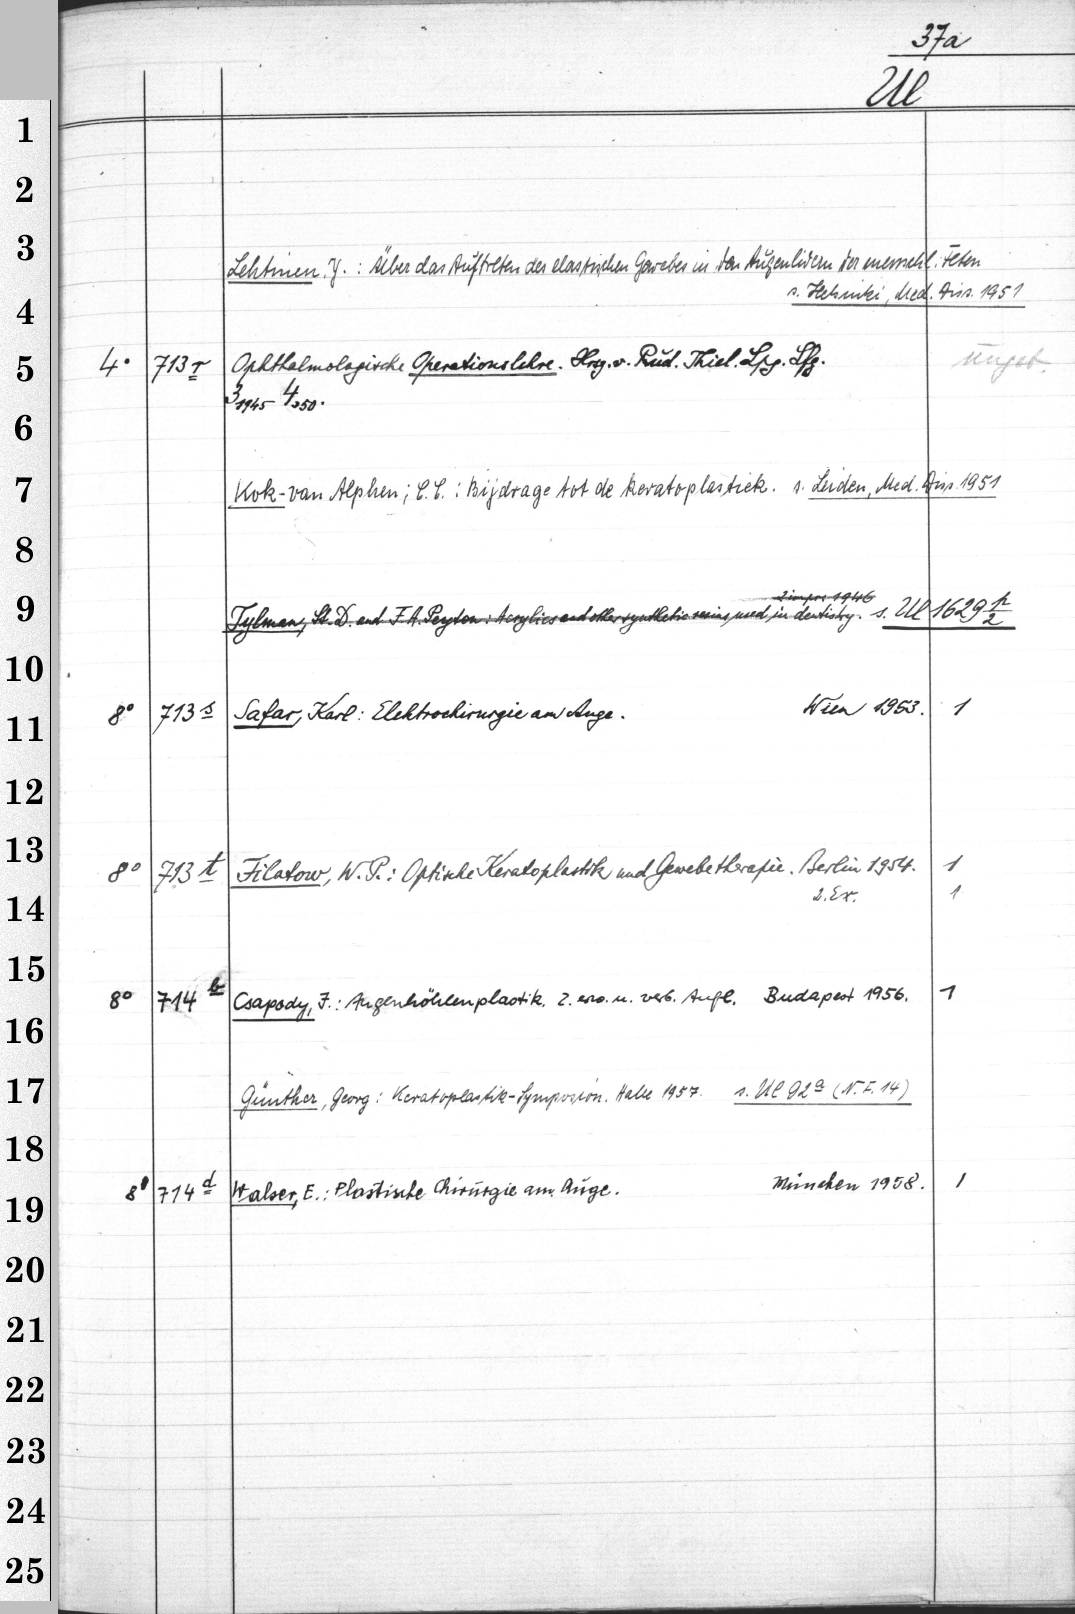 37a
Ul
1
2
3
Lehtinen, Y. : Über das Auftreten des elastischen Gewebes in den Augenlidern der menschl. Feten
4
s. Helsinki, Med. Diss. 1951
5
4° 713 r Ophthalmologische Operationslehre. Hrg. v. Rud. Thiel. Lpg. Lfg. ungeb.
3 1945 4 1950.
6
7
Kok-van Alphen, C.C. : Bijdrage tot de keratoplastiek. s. Leiden, Med. Diss. 1951
8
9
2 impr. 1946
Tylman, St. D. and F. A. Peyton : Acrylics and other synthetic resins used in dentistry. s. Ul 1629 h/2
10
11
8° 713 s Safar, Karl : Elektrochirurgie am Auge. Wien 1953. 1
12
13
8° 713 t Filatow, W. P. : Optische Keratoplastik und Gewebetherapie. Berlin 1954. 1
14
2. Ex. 1
15
8° 714 b Csapody, I. : Augenhöhlenplastik. 2. erw. u. verb. Aufl. Budapest 1956. 1
16
17
Günther, Georg : Keratoplastik-Symposion. Halle 1957. s. Ul 92 a (N. F. 14)
18
8° 714 d Walser, E. : Plastische Chirurgie am Auge. München 1958. 1
19
20
21
22
23
24
25